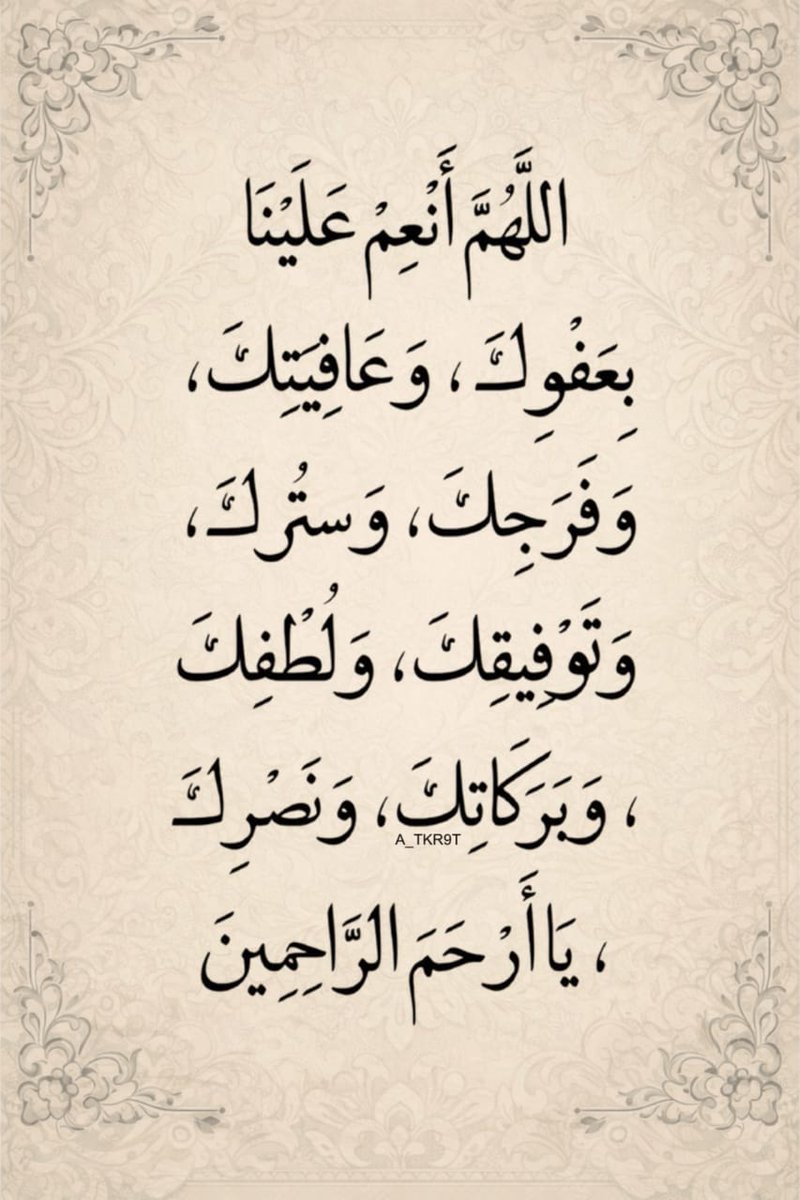 اللَّهُمَّ أَنْعِمْ عَلَيْنَا
بِعَفْوِكَ ، وَعَافِيَتِكَ ،
وَفَرَجِكَ ، وَستُركَ ،
وَتَوْفِيقِكَ ، وَلُطْفِكَ
، وَبَرَكَاتِكَ ، وَنَصْرِكَ
A_TKR9T
، يَا أَرْحَمَ الرَّاحِمِينَ